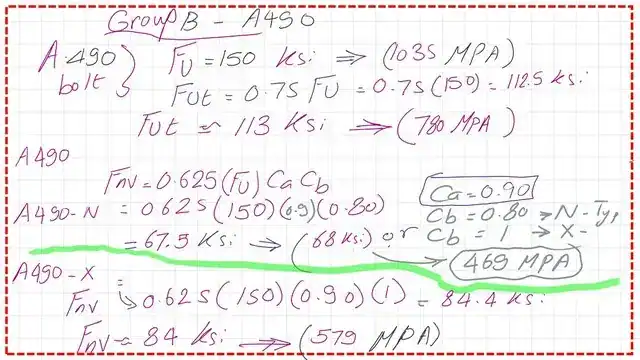 Group B - A490
A.490 bolt } FU = 150 Ksi ⇒ (1035 MPA)
Fut = 0.75 FU = 0.75(150) = 112.5 Ksi
Fut ≈ 113 Ksi ⇒ (780 MPA)
A490
Fnv = 0.625(FU) Ca Cb
Ca = 0.90
A490-N = 0.625(150)(0.9)(0.80)
Cb = 0.80 → N-Typ
= 67.5 Ksi → (68 Ksi) or
Cb = 1 → X-
469 MPA
A490-X =
Fnv ↳ 0.625(150)(0.90)(1) = 84.4 Ksi
Fnv ≈ 84 Ksi ⇒ (579 MPA)